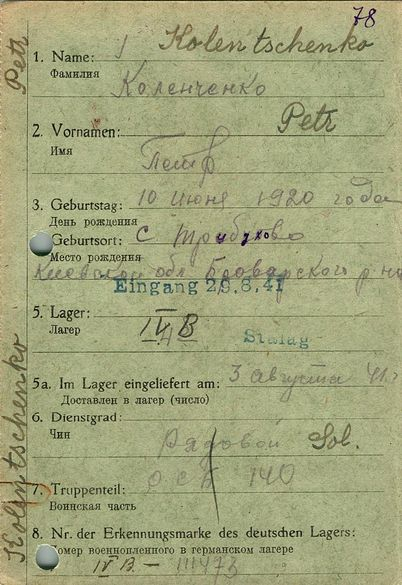 78
1. Name: Kolentschenko
Фамилия
Коленченко
Petr
2. Vornamen: Petr
Имя
Петр
3. Geburtstag: 10 июня 1920 года
День рождения
Geburtsort: с
Место рождения
Киевской обл Броварского р на
Eingang 29.8.41
5. Lager: IV B
Лагер
Stalag
5a. Im Lager eingeliefert am: 3 августа 41 г
Доставлен в лагер (число)
6. Dienstgrad:
Чин
Рядовой Sol.
140
7. Truppenteil:
Воинская часть
8. Nr. der Erkennungsmarke des deutschen Lagers:
Номер военнопленного в германском лагере
IV B. –
Kolentschenko